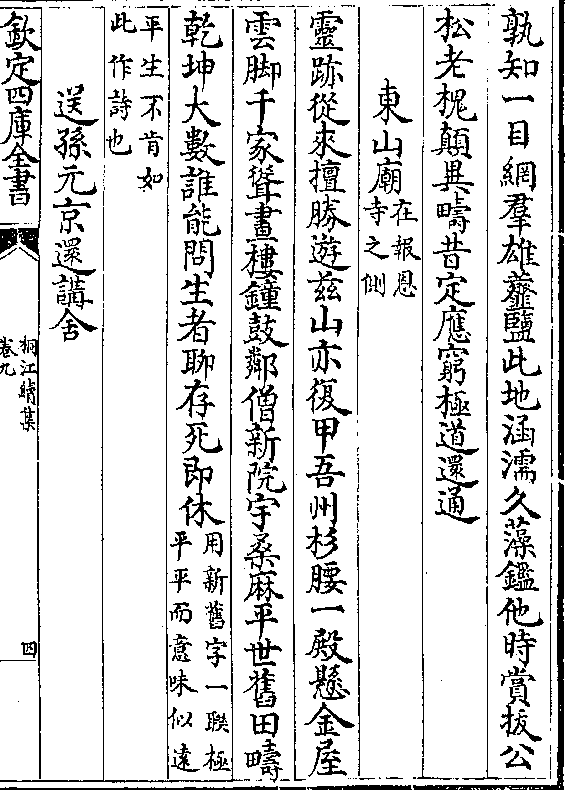 孰知一目網羣雄虀鹽此地涵濡久藻鑑他時賞拔公
松老槐顛異疇昔定應窮極道還通
東山廟在報恩
寺之側
靈跡從來擅勝遊兹山亦復甲吾州杉腰一殿懸金屋
雲脚千家聳畫樓鐘鼓鄰僧新院宇桑麻平世舊田疇
乾坤大數誰能問生者聊存死即休用新舊字一聯極
平平而意味似遠
平生不肯如
此作詩也
送孫元京還講舍
欽定四庫全書
桐江續集
卷九
四